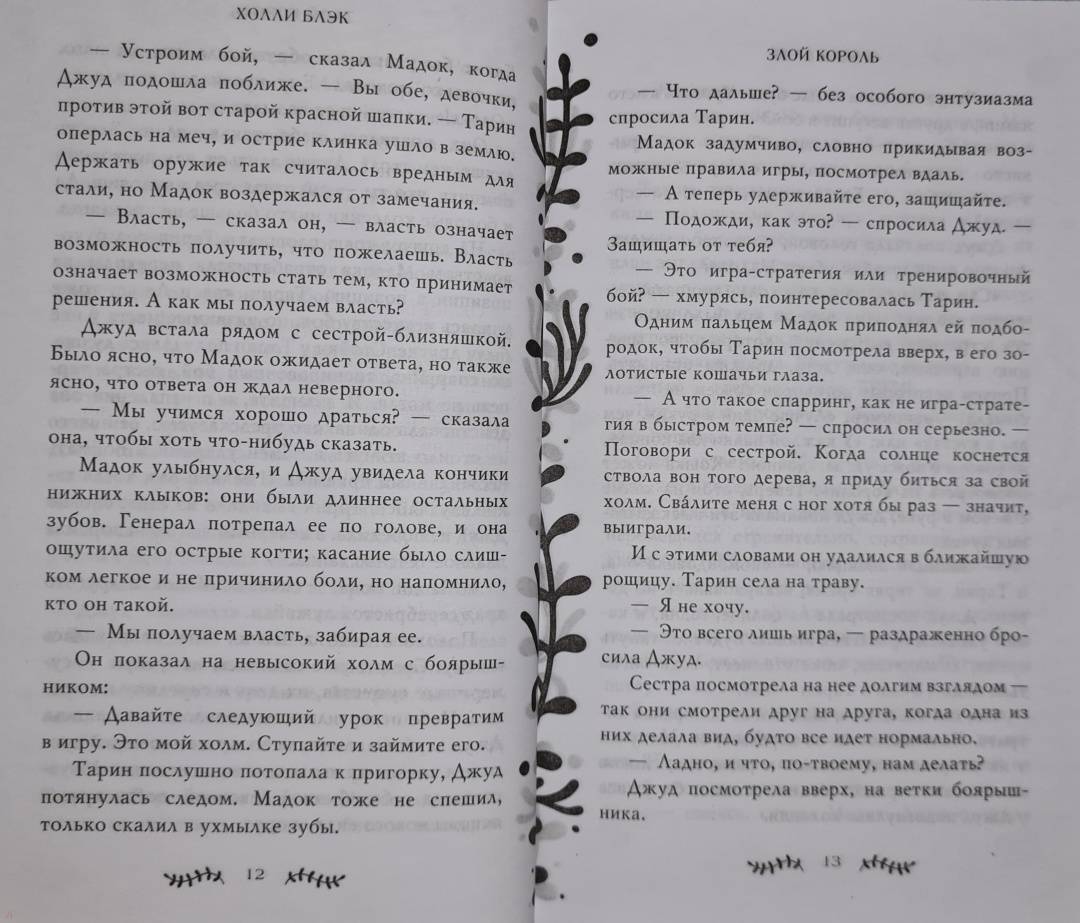 ХОЛЛИ БЛЭК
— Устроим бой, — сказал Мадок, когда
Джуд подошла поближе. — Вы обе, девочки,
против этой вот старой красной шапки. — Тарин
оперлась на меч, и острие клинка ушло в землю.
Держать оружие так считалось вредным для
стали, но Мадок воздержался от замечания.
— Власть, — сказал он, — власть означает
возможность получить, что пожелаешь. Власть
означает возможность стать тем, кто принимает
решения. А как мы получаем власть?
Джуд встала рядом с сестрой-близняшкой.
Было ясно, что Мадок ожидает ответа, но также
ясно, что ответа он ждал неверного.
— Мы учимся хорошо драться? — сказала
она, чтобы хоть что-нибудь сказать.
Мадок улыбнулся, и Джуд увидела кончики
нижних клыков: они были длиннее остальных
зубов. Генерал потрепал ее по голове, и она
ощутила его острые когти; касание было слиш-
ком легкое и не причинило боли, но напомнило,
кто он такой.
— Мы получаем власть, забирая ее.
Он показал на невысокий холм с боярыш-
ником:
— Давайте следующий урок превратим
в игру. Это мой холм. Ступайте и займите его.
Тарин послушно потопала к пригорку, Джуд
потянулась следом. Мадок тоже не спешил,
только скалил в ухмылке зубы.
12
ЗЛОЙ КОРОЛЬ
— Что дальше? — без особого энтузиазма
спросила Тарин.
Мадок задумчиво, словно прикидывая воз-
можные правила игры, посмотрел вдаль.
— А теперь удерживайте его, защищайте.
— Подожди, как это? — спросила Джуд. —
Защищать от тебя?
— Это игра-стратегия или тренировочный
бой? — хмурясь, поинтересовалась Тарин.
Одним пальцем Мадок приподнял ей подбо-
родок, чтобы Тарин посмотрела вверх, в его зо-
лотистые кошачьи глаза.
— А что такое спарринг, как не игра-страте-
гия в быстром темпе? — спросил он серьезно. —
Поговори с сестрой. Когда солнце коснется
ствола вон того дерева, я приду биться за свой
холм. Сва́лите меня с ног хотя бы раз — значит,
выиграли.
И с этими словами он удалился в ближайшую
рощицу. Тарин села на траву.
— Я не хочу.
— Это всего лишь игра, — раздраженно бро-
сила Джуд.
Сестра посмотрела на нее долгим взглядом —
так они смотрели друг на друга, когда одна из
них делала вид, будто все идет нормально.
— Ладно, и что, по-твоему, нам делать?
Джуд посмотрела вверх, на ветки боярыш-
ника.
13